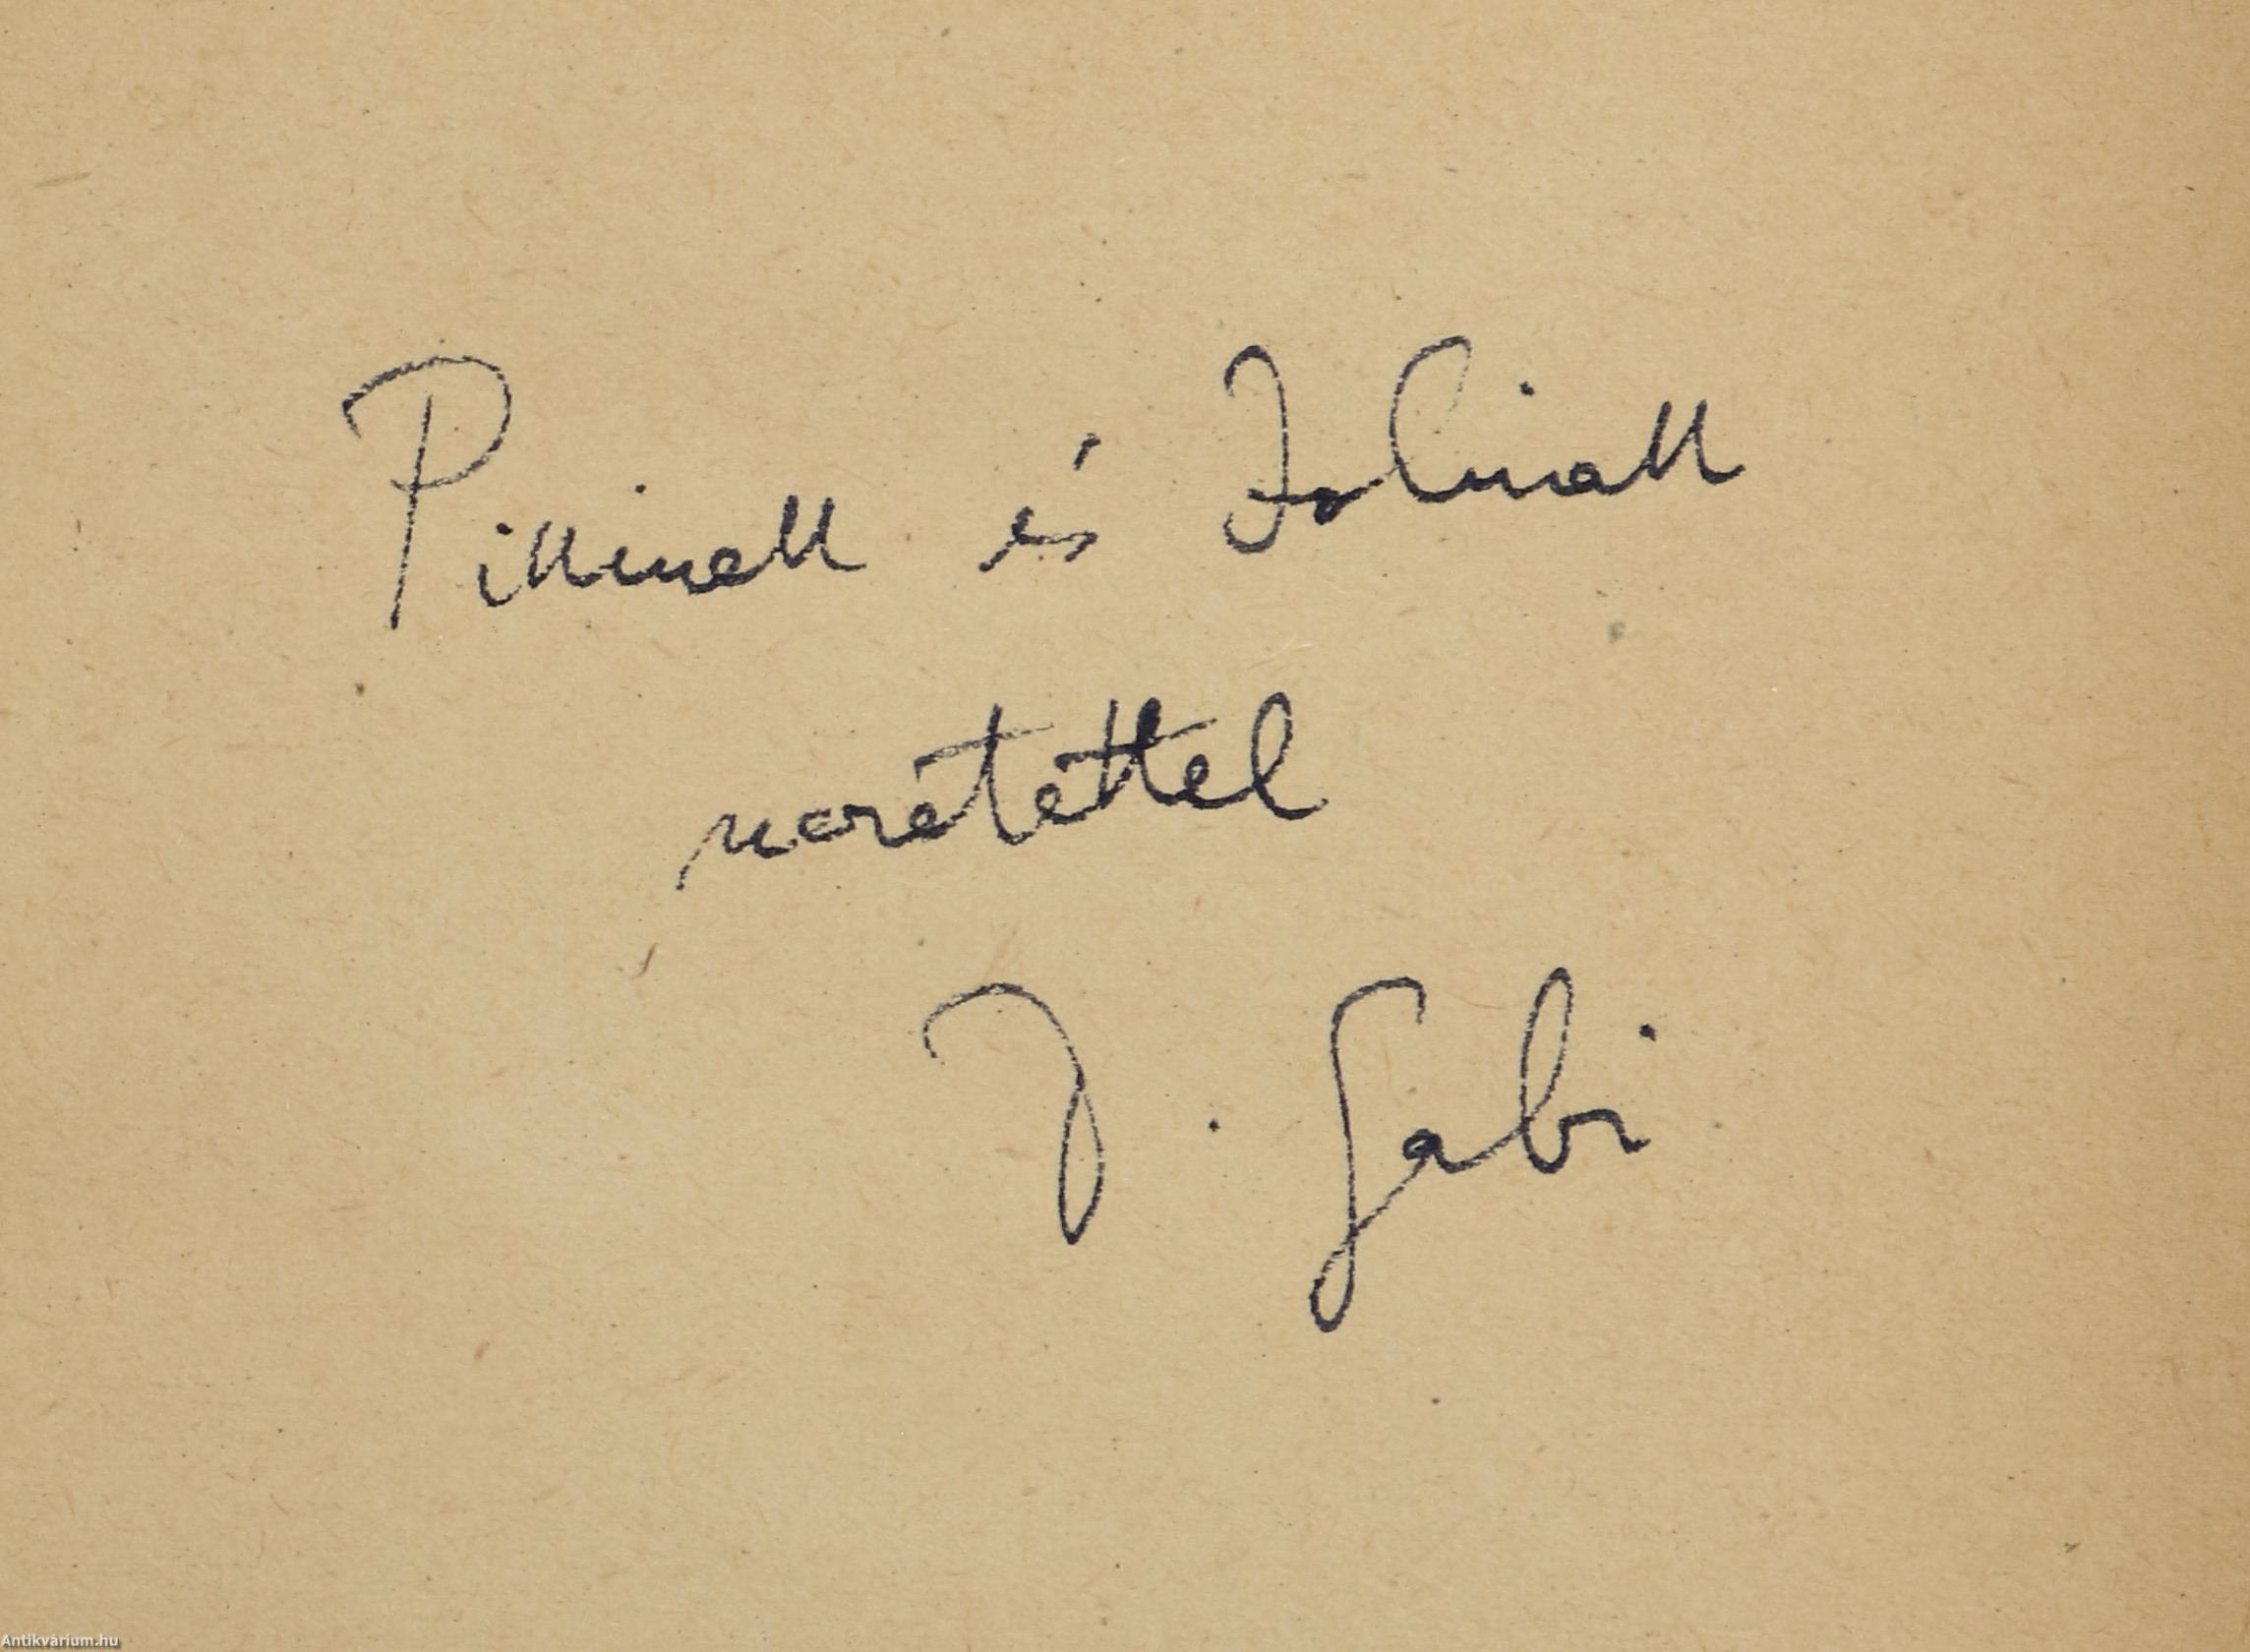 Pikinek és Zolinak
szeretettel
J. Gabi
Antikvárium.hu